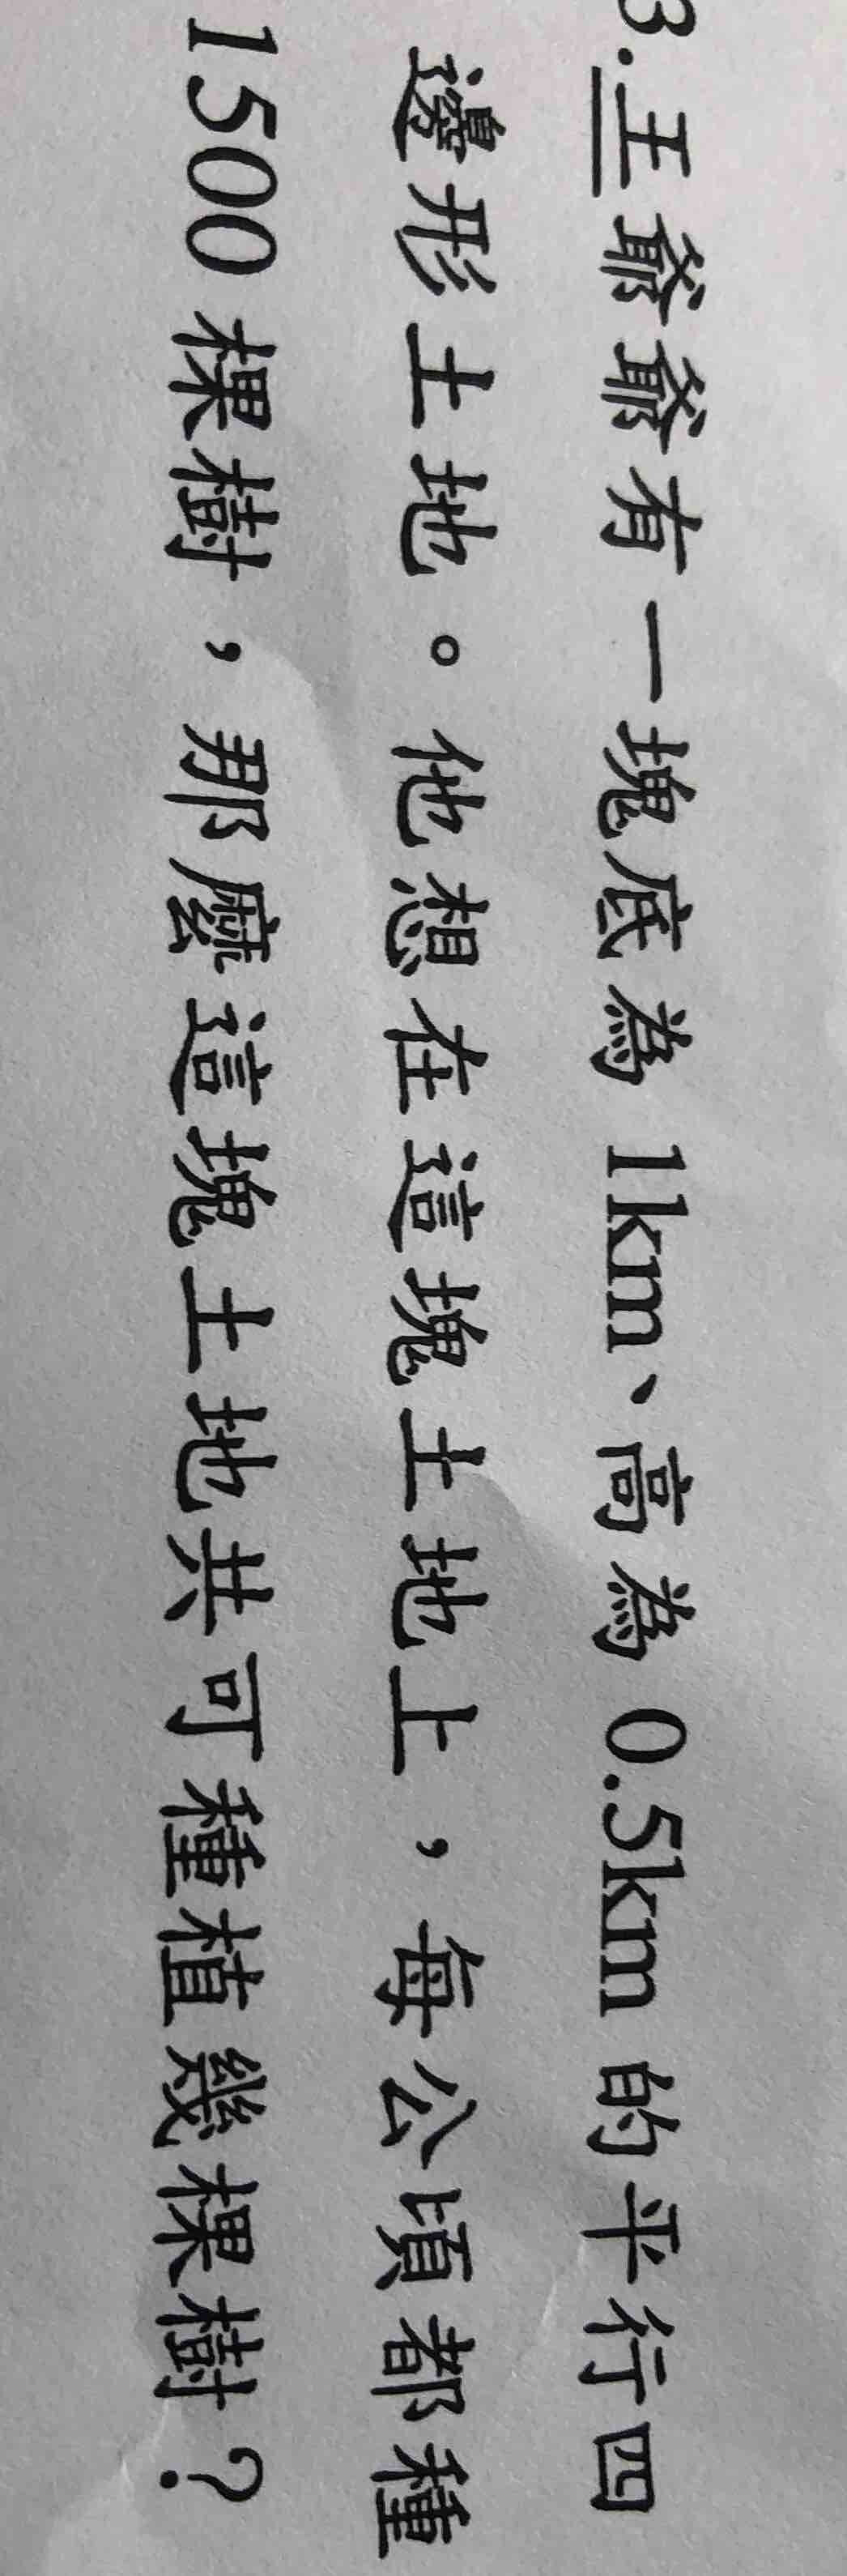 3.王爺爺有一塊底為 1km、高為 0.5km 的平行四
邊形土地。他想在這塊土地上，每公頃都種
1500 棵樹，那麼這塊土地共可種植幾棵樹？